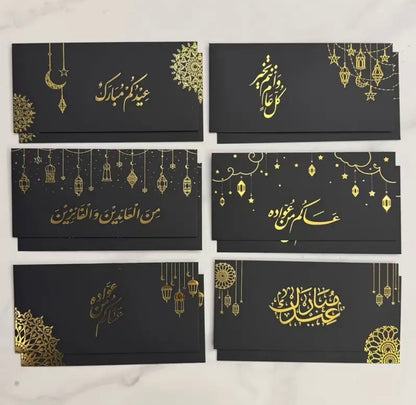 عيدكم مبارك
كل عام وأنتم بخير
من العايدين والفايزين
عساكم من عواده
عساكم من عواده
عيدك مبارك